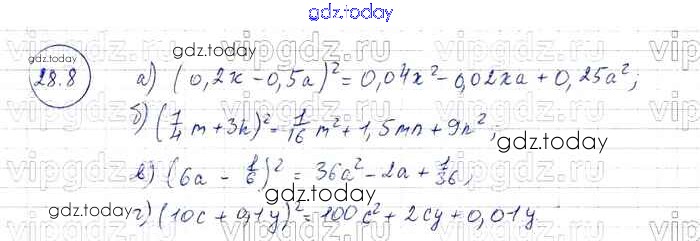 gdz.today
28.8
gdz.today
а) (0,2x - 0,5a)² = 0,04x² - 0,02xa + 0,25a²;
б) (1/4 m + 3n)² = 1/16 m² + 1,5mn + 9n²;
gdz.today
в) (6a - 1/6)² = 36a² - 2a + 1/36;
gdz.today
gdz.today
г) (10c + 0,1y)² = 100c² + 2cy + 0,01y
vipgdz.ru
vipgdz.ru
vipgdz.ru
vipgdz.ru
vipgdz.ru
vipgdz.ru
vipgdz.ru